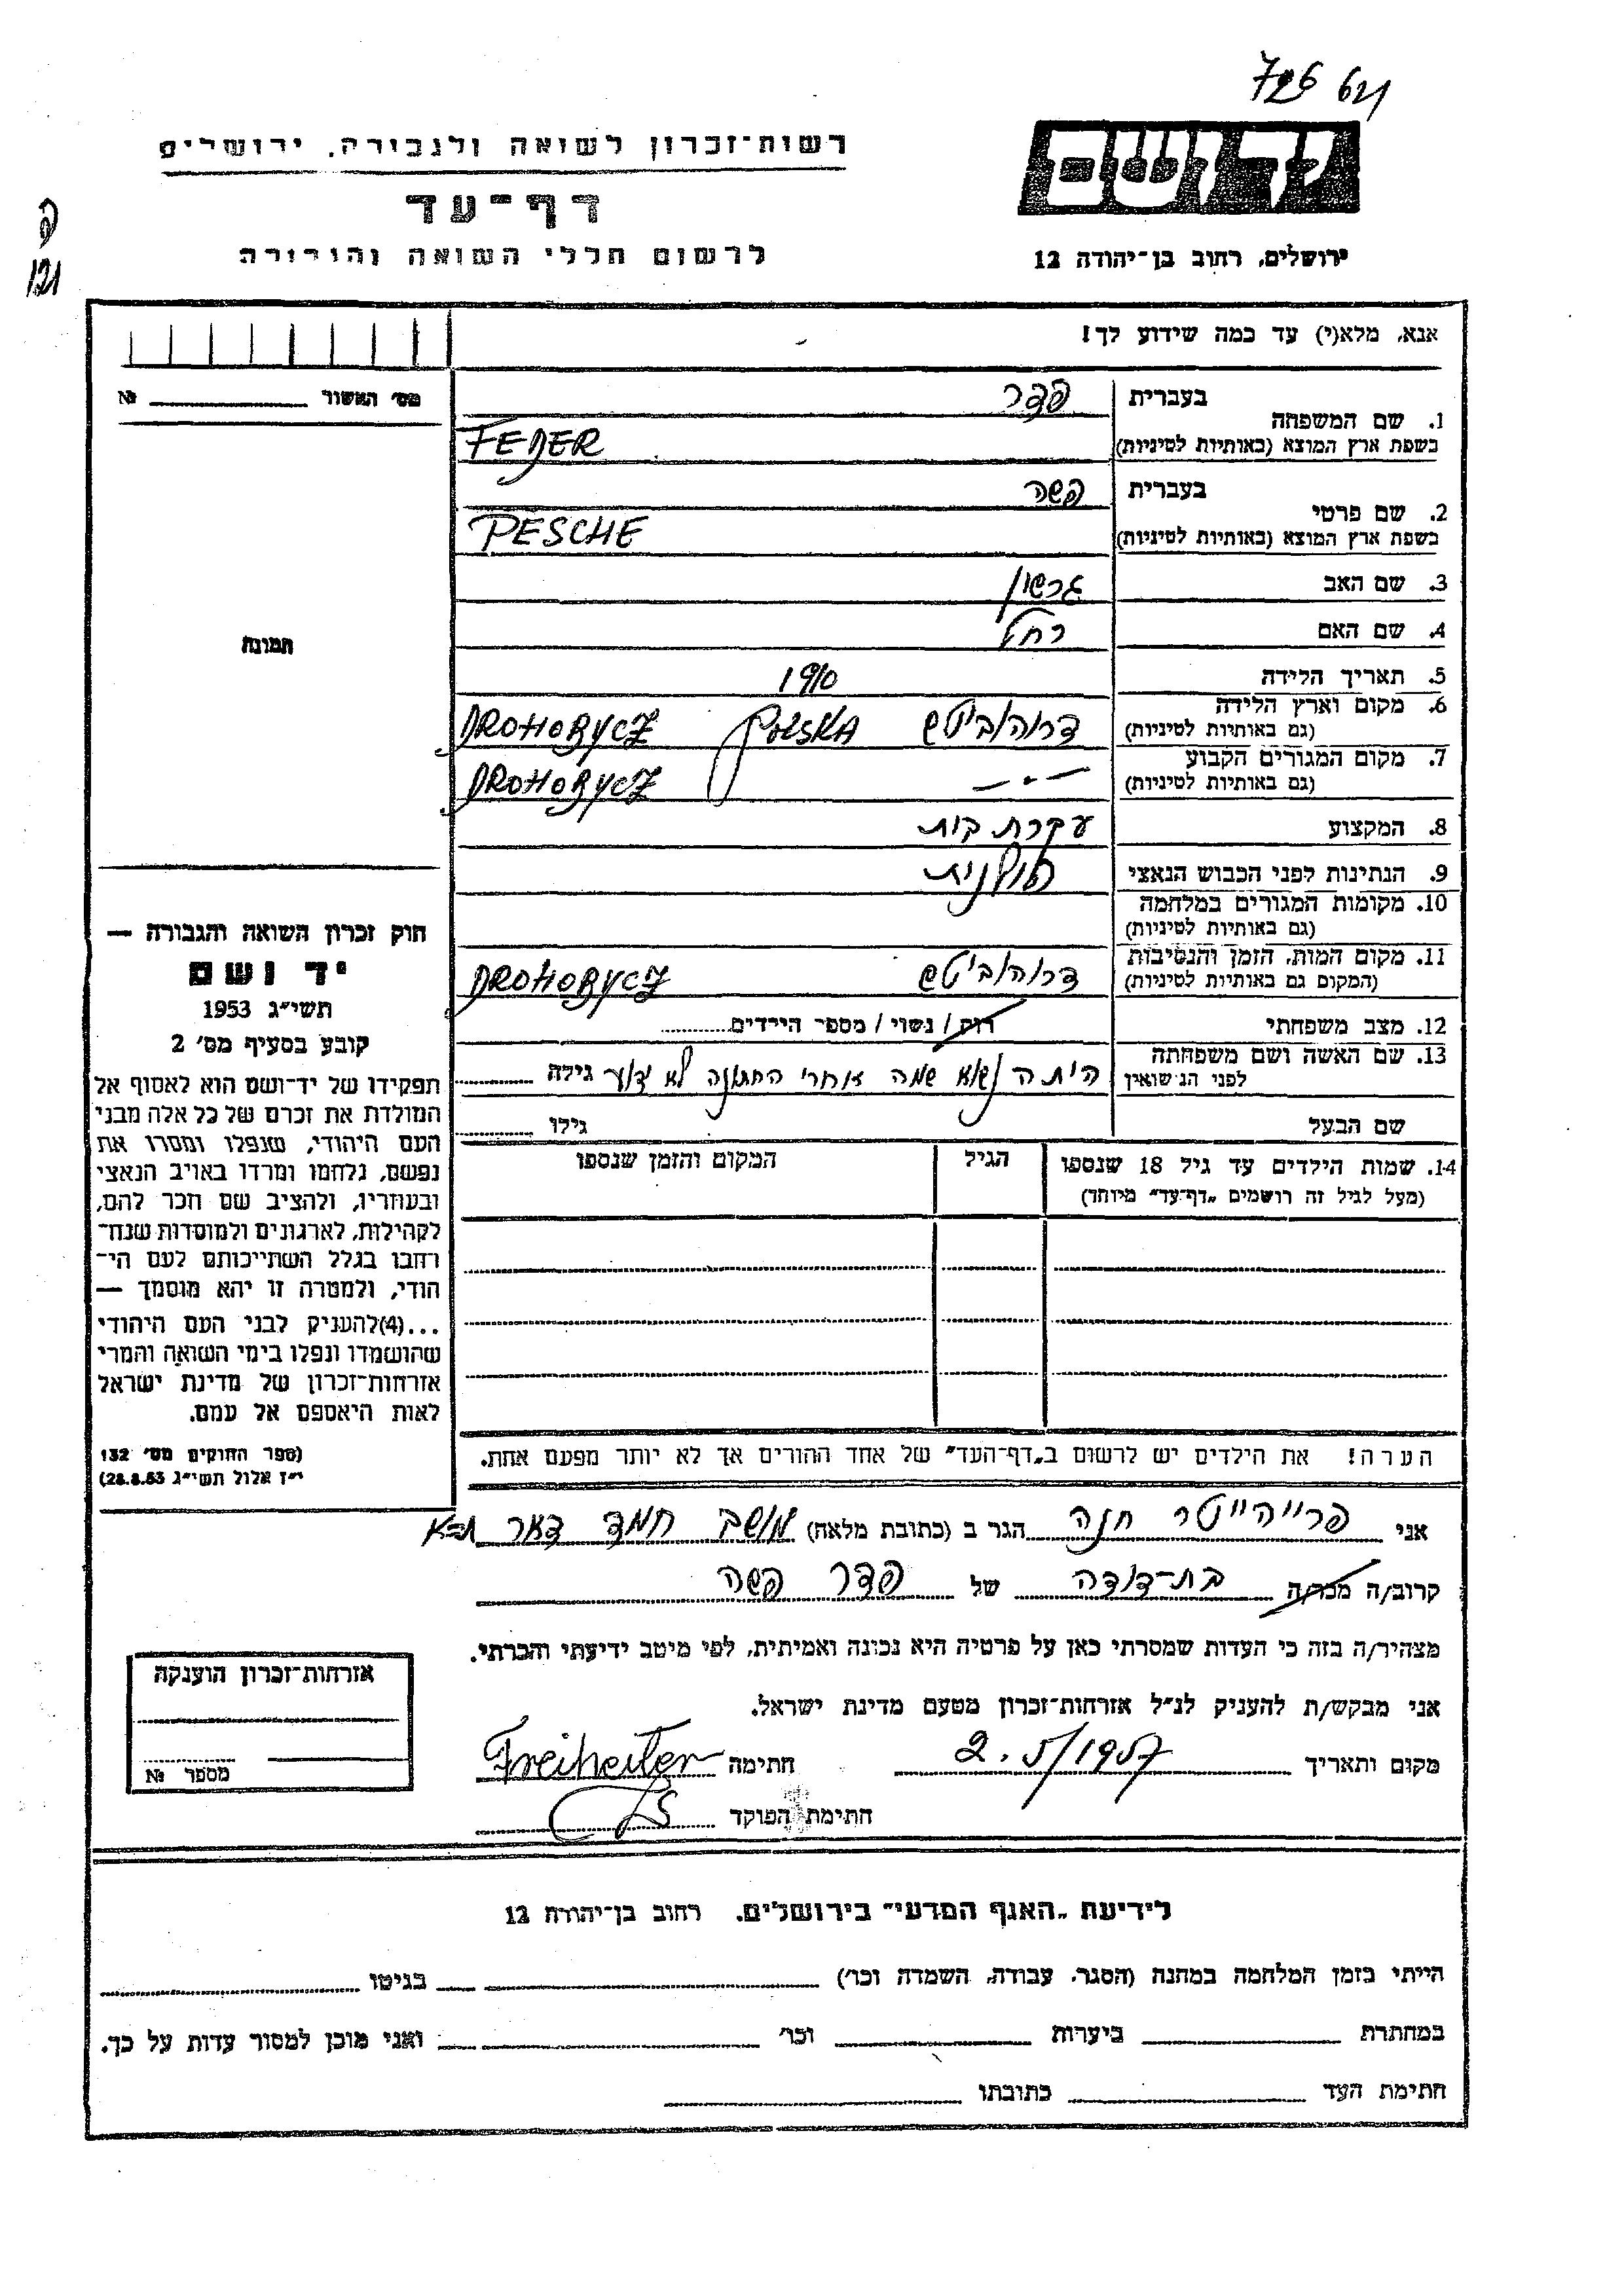 726 64
רשות־זכרון לשואה ולגבורה, ירושלים
דף־עד
לרשום חללי השואה והגבורה
יד ושם
ירושלים, רחוב בן־יהודה 12
121
אנא, מלא(י) עד כמה שידוע לך!
מס' האשור № 
1. שם המשפחה בעברית פדר
בשפת ארץ המוצא (באותיות לטיניות) FEDER
2. שם פרטי בעברית פשה
בשפת ארץ המוצא (באותיות לטיניות) PESCHE
3. שם האב גרשון
4. שם האם רחל
5. תאריך הלידה 1910
6. מקום וארץ הלידה דרוהוביטש POLSKA DROHOBYCZ
(גם באותיות לטיניות)
7. מקום המגורים הקבוע — . — DROHOBYCZ
(גם באותיות לטיניות)
8. המקצוע עקרת בית
9. הנתינות לפני הכבוש הנאצי פולנית
10. מקומות המגורים במלחמה
(גם באותיות לטיניות)
11. מקום המות, הזמן והנסיבות דרוהוביטש DROHOBYCZ
(המקום גם באותיות לטיניות)
12. מצב משפחתי רווק / נשוי / מספר הילדים
13. שם האשה ושם משפחתה היתה נשוא שמה אחרי החתונה לא ידוע גילה
לפני הנישואין
שם הבעל גילו
14. שמות הילדים עד גיל 18 שנספו הגיל המקום והזמן שנספו
(מעל לגיל זה רושמים „דף־עד” מיוחד)
הערה! את הילדים יש לרשום ב„דף־העד” של אחד ההורים אך לא יותר מפעם אחת.
תמונה
חוק זכרון השואה והגבורה —
יד ושם
תשי״ג 1953
קובע בסעיף מס' 2
תפקידו של יד־ושם הוא לאסוף אל
המולדת את זכרם של כל אלה מבני
העם היהודי, שנפלו ומסרו את
נפשם, נלחמו ומרדו באויב הנאצי
ובעוזריו, ולהציב שם וזכר להם,
לקהילות, לארגונים ולמוסדות שנח־
רחבו בגלל השתייכותם לעם הי־
הודי, ולמטרה זו יהא מוסמך —
...(4)להעניק לבני העם היהודי
שהושמדו ונפלו בימי השואה והמרי
אזרחות־זכרון של מדינת ישראל
לאות היאספם אל עמם.
(ספר החוקים מס' 132
י״ז אלול תשי״ג 28.8.53)
אני פרייהייטר חנה הגר ב (כתובת מלאה) מושב חמד דאר ת״א
קרוב/ה מכר/ה בת־דודה של פדר פשה
מצהיר/ה בזה כי העדות שמסרתי כאן על פרטיה היא נכונה ואמיתית, לפי מיטב ידיעתי והכרתי.
אני מבקש/ת להעניק לנ״ל אזרחות־זכרון מטעם מדינת ישראל.
מקום ותאריך 2.5/1957 חתימה Freiheiter
חתימת הפוקד
אזרחות־זכרון הוענקה
מספר №
לידיעת „האגף המדעי” בירושלים, רחוב בן־יהודה 12
הייתי בזמן המלחמה במחנה (הסגר, עבודה, השמדה וכו') בגיטו
במחתרת ביערות וכו' ואני מוכן למסור עדות על כך.
חתימת העד כתובתו